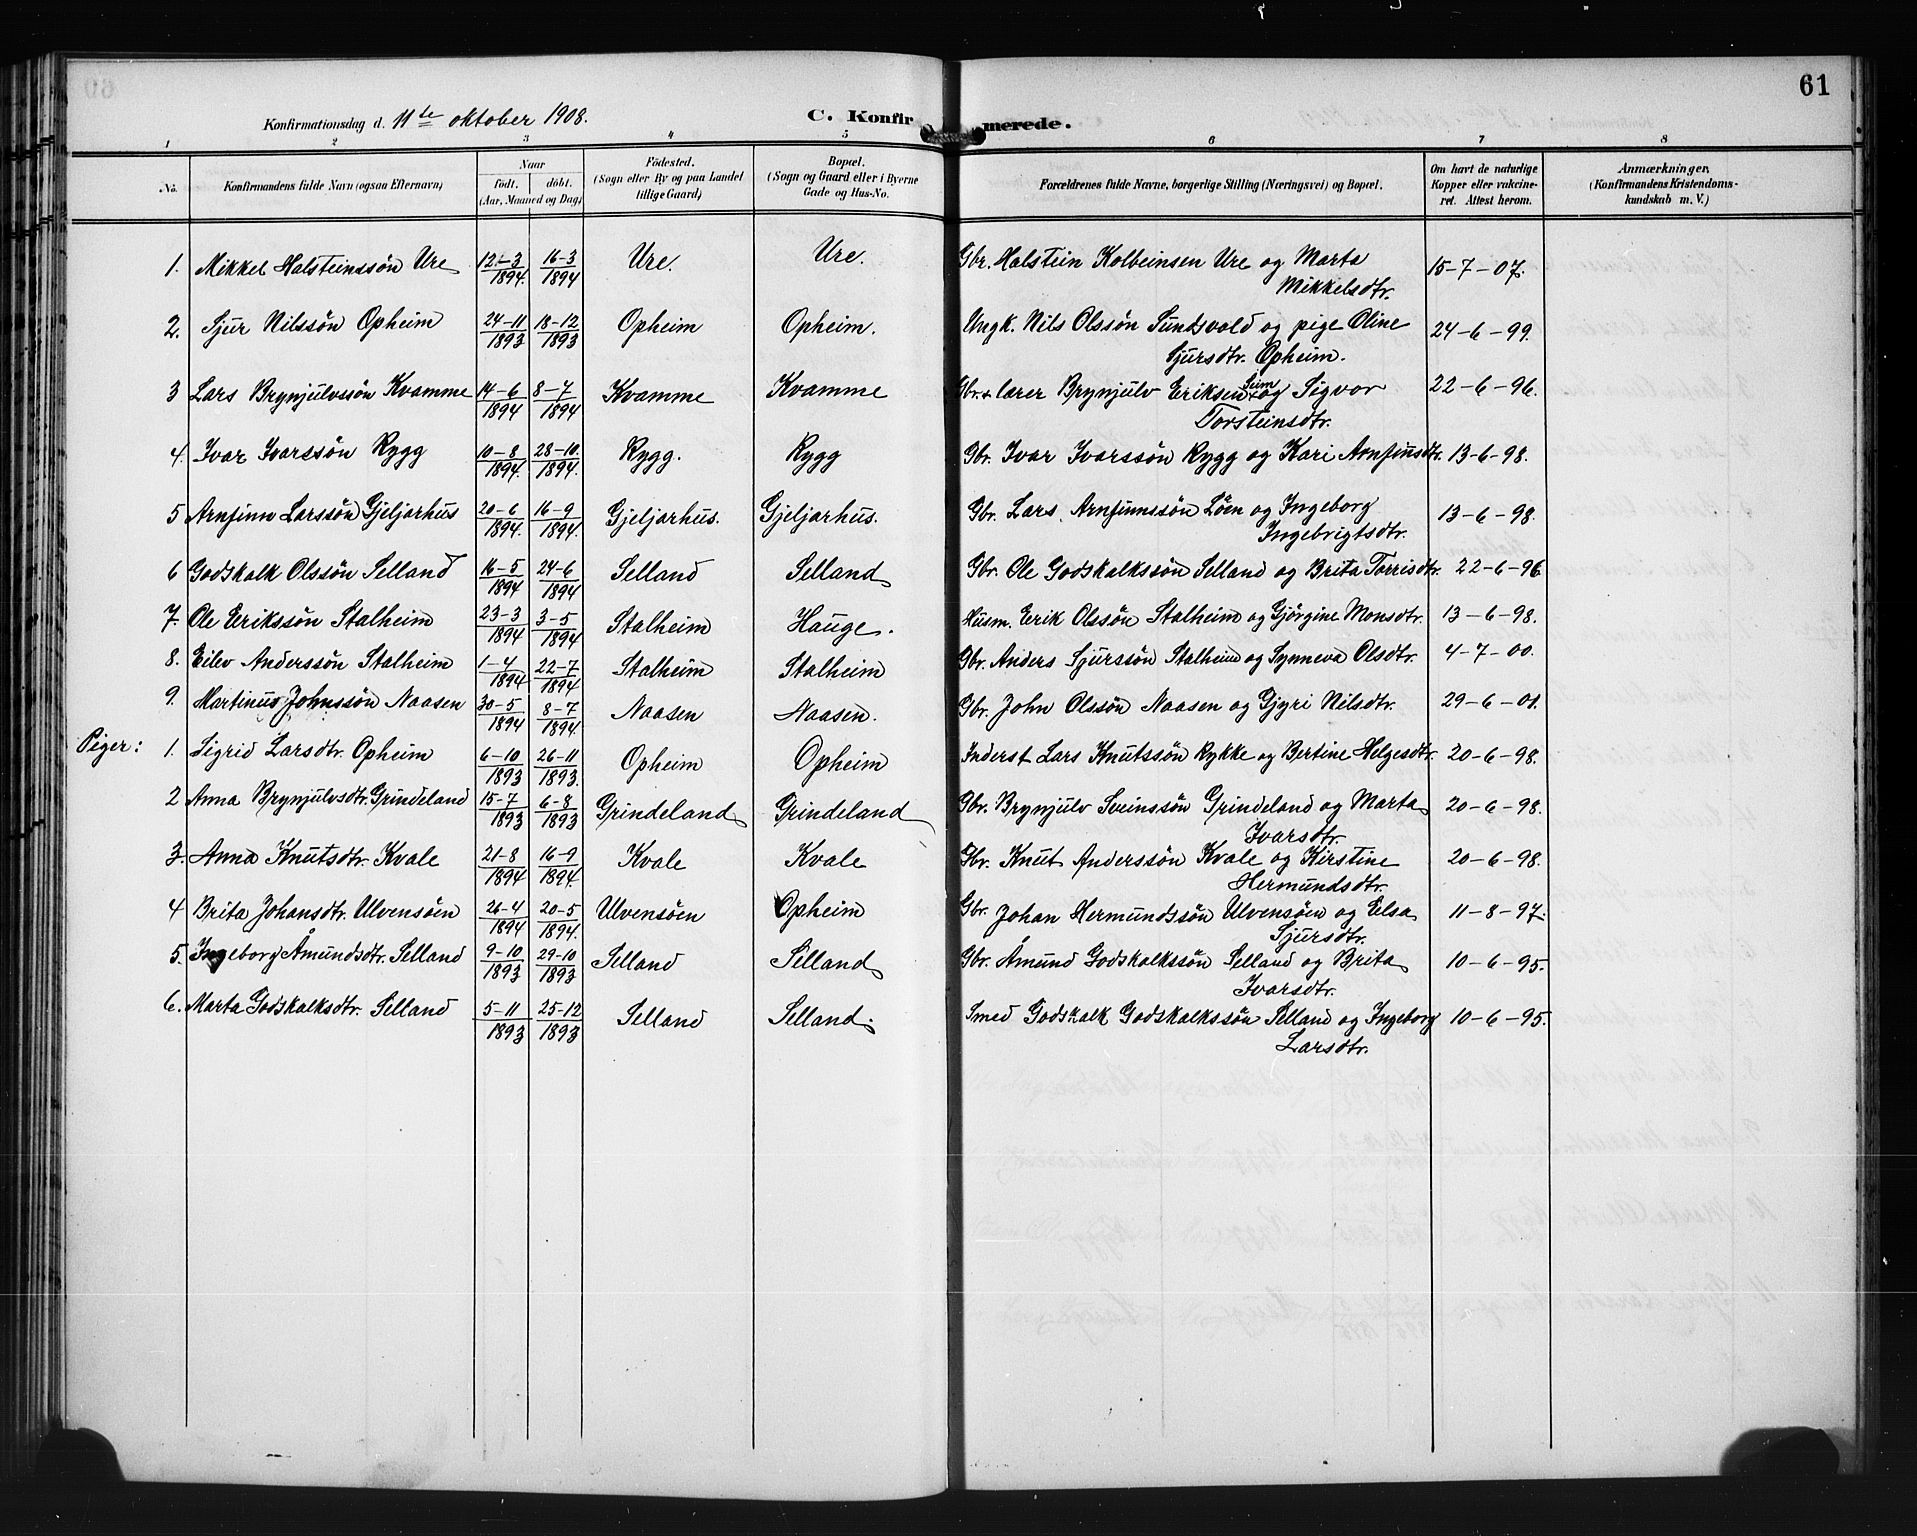 61
Konfirmationsdag d. 11te oktober 1908. C. Konfirmerede.
1 2 3 4 5 6 7 8
No. Konfirmandens fulde Navn (ogsaa Efternavn) Naar født. døbt. (Aar, Maaned og Dag) Födested. (Sogn eller By og paa Landet tillige Gaard) Bopæl. (Sogn og Gaard eller i Byerne Gade og Hus-No. Forældrenes fulde Navne, borgerlige Stilling (Næringsvei) og Bopæl. Om havt de naturlige Kopper eller vakcineret. Attest herom. Anmærkninger. (Konfirmandens Kristendomskundskab m. V.)
1. Mikkel Halsteinssön Ure 12-3 1894. 16-3 1894 Ure. Ure. Gbr. Halstein Kolbeinsen Ure og Marta Mikkelsdtr. 15-7-07.
2. Sjur Nilssön Opheim 24-11 1893 18-12 1893 Opheim Opheim. Ungk. Nils Olssön Sundsvold og pige Oline Sjursdtr. Opheim. 24-6-99.
3 Lars Brynjulvssön Kvamme 14-6 1894 8-7 1894 Kvamme Kvamme Gbr. & lærer Brynjulv Eriksen Seim og Sigvor Torsteinsdtr. 22-6-96.
4. Ivar Ivarssön Rygg 10-8 1894. 28-10. 1894. Rygg. Rygg Gbr. Ivar Ivarssön Rygg og Kari Arnfinsdtr. 13-6-98.
5 Arnfinn Larssön Gjeljarhus 20-6 1894. 16-9 1894. Gjeljarhus. Gjeljarhus. Gbr. Lars Arnfinnssön Löen og Ingeborg Ingebrigtsdtr. 13-6-98.
6 Godskalk Olssön Selland 16-5 1894 24-6 1894 Selland Selland Gbr. Ole Godskalkssön Selland og Brita Torrisdtr. 22-6-96.
7. Ole Erikssön Stalheim 23-3 1894 3-5 1894 Stalheim Hauge. Husm. Erik Olssön Stalheim og Gjörgine Monsdtr. 13-6-98.
8. Eilev Anderssön Stalheim 1-4 1894 22-7 1894 Stalheim Stalheim Gbr. Anders Sjurssön Stalheim og Synneva Olsdtr. 4-7-00.
9. Martinus Johnssön Naasen 30-5 1894 8-7 1894. Naasen Naasen. Gbr. John Olssön Naasen og Gjyri Nilsdtr. 29-6-01.
Piger: 1. Sigrid Larsdtr. Opheim 6-10 1893 26-11 1893. Opheim Opheim Inderst Lars Knutssön Rykke og Bertine Helgesdtr. 20-6-98.
2 Anna Brynjulvsdtr. Grindeland 15-7 1893 6-8 1893 Grindeland Grindeland Gbr. Brynjulv Sveinssön Grindeland og Marta Ivarsdtr. 20-6-98.
3. Anna Knutsdtr. Kvale 21-8 1894 16-9 1894. Kvale Kvale Gbr. Knut Anderssön Kvale og Kirstine Hermundsdtr. 20-6-98.
4 Brita Johansdtr. Ulvensöen 26-4 1894 20-5 1894. Ulvensöen Opheim Gbr. Johan Hermundssön Ulvensöen og Eilsa Sjursdtr. 11-8-97.
5. Ingeborg Åmundsdtr. Selland 9-10 1893 29-10 1893 Selland Selland Gbr. Åmund Godskalkssön Selland og Brita Ivarsdtr. 10-6-95.
6. Marta Godskalksdtr. Selland 5-11 1893 25-12 1893 Selland Selland. Smed Godskalk Godskalkssön Selland og Ingeborg Larsdtr. 10-6-95.